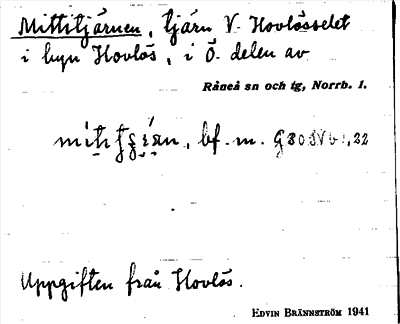 Mittitjärnen, tjärn V. Hovlösselet
i byn Hovlös, i Ö. delen av
Råneå sn och tg, Norrb. l.
bf. m.
Uppgiften från Hovlös.
EDVIN BRÄNNSTRÖM 1941